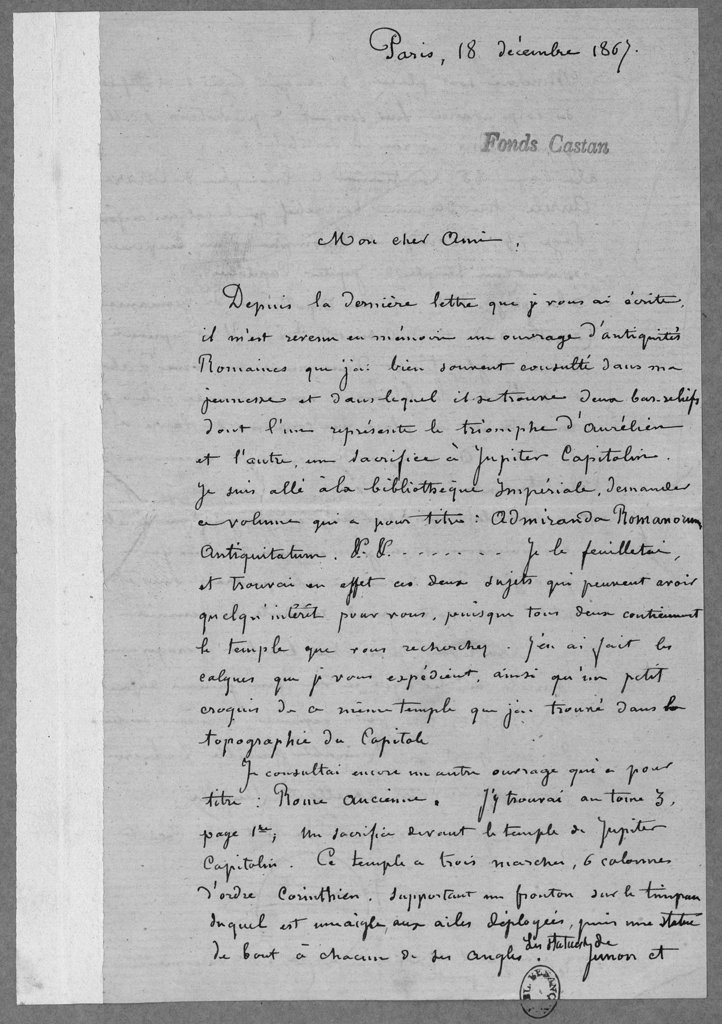 Paris, 18 décembre 1867.
Fonds Castan
Mon cher Ami,
Depuis la dernière lettre que je vous ai écrite,
il m'est revenu en mémoire un ouvrage d'antiquités
Romaines que j'ai bien souvent consulté dans ma
jeunesse et dans lequel il se trouve deux bas-reliefs
dont l'un représente le triomphe d'Aurélien
et l'autre, un sacrifice à Jupiter Capitolin.
Je suis allé à la bibliothèque Impériale, demander
ce volume qui a pour titre : Admiranda Romanorum
Antiquitatum. &. &. . . . . . . . Je le feuilletai,
et trouvai en effet ces deux sujets qui peuvent avoir
quelqu'intérêt pour vous, puisque tous deux contiennent
le temple que vous recherchez. J'en ai fait les
calques que je vous expédient, ainsi qu'un petit
croquis de ce même temple que j'ai trouvé dans la
topographie du Capitole
Je consultai encore un autre ouvrage qui a pour
titre : Rome ancienne. J'y trouvai au tome 3,
page 1re; un sacrifice devant le temple de Jupiter
Capitolin. Ce temple a trois marches, 6 colonnes
d'ordre Corinthien, supportant un fronton sur le timpan
duquel est un aigle, aux ailes déployées, puis une statue
de bout à chacun de ses angles. Les statues de Junon et